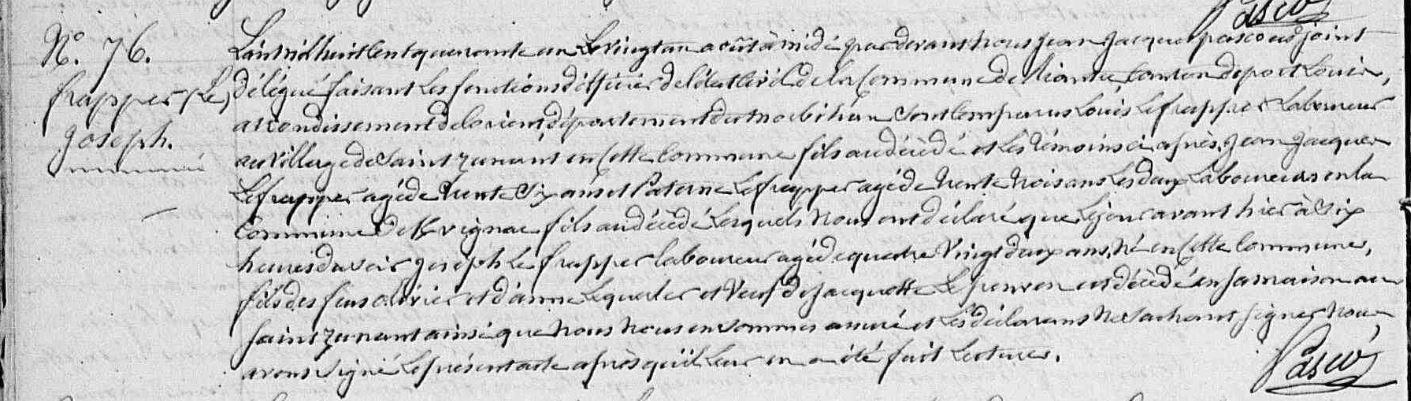 Pascô
N.º 76.
frapper (Le)
Joseph.
L'an mil huit cent quarante un Le vingt un août à midi par devant nous Jean Jacques pasco adjoint
délégué faisant les fonctions d'officier de l'état civil de la Commune de Riantec, Canton de port Louis,
arrondissement de Lorient, département du morbihan Sont Comparus Louis Le frapper Laboureur
au village de Saint Zunant en cette Commune fils au décédé et les témoins ci après, Jean Jacques
Le frapper agé de trente Six ans et Paterne Le frapper agé de trente trois ans Les deux Laboureurs en la
Commune de Kvignac fils au décédé Lesquels nous ont déclaré que Le jour avant hier à Six
heures du soir Joseph Le frapper laboureur agé de quatre vingt deux ans, né en cette Commune,
fils des feus olivier et d'anne et veuf de Jacquette est décédé en sa maison au
Saint Zunant ainsi que nous nous en sommes assuré et Les déclarans ne sachant signer nous
avons signé Le présent acte après qu'il Leur en a été fait Lecture.
Pascô